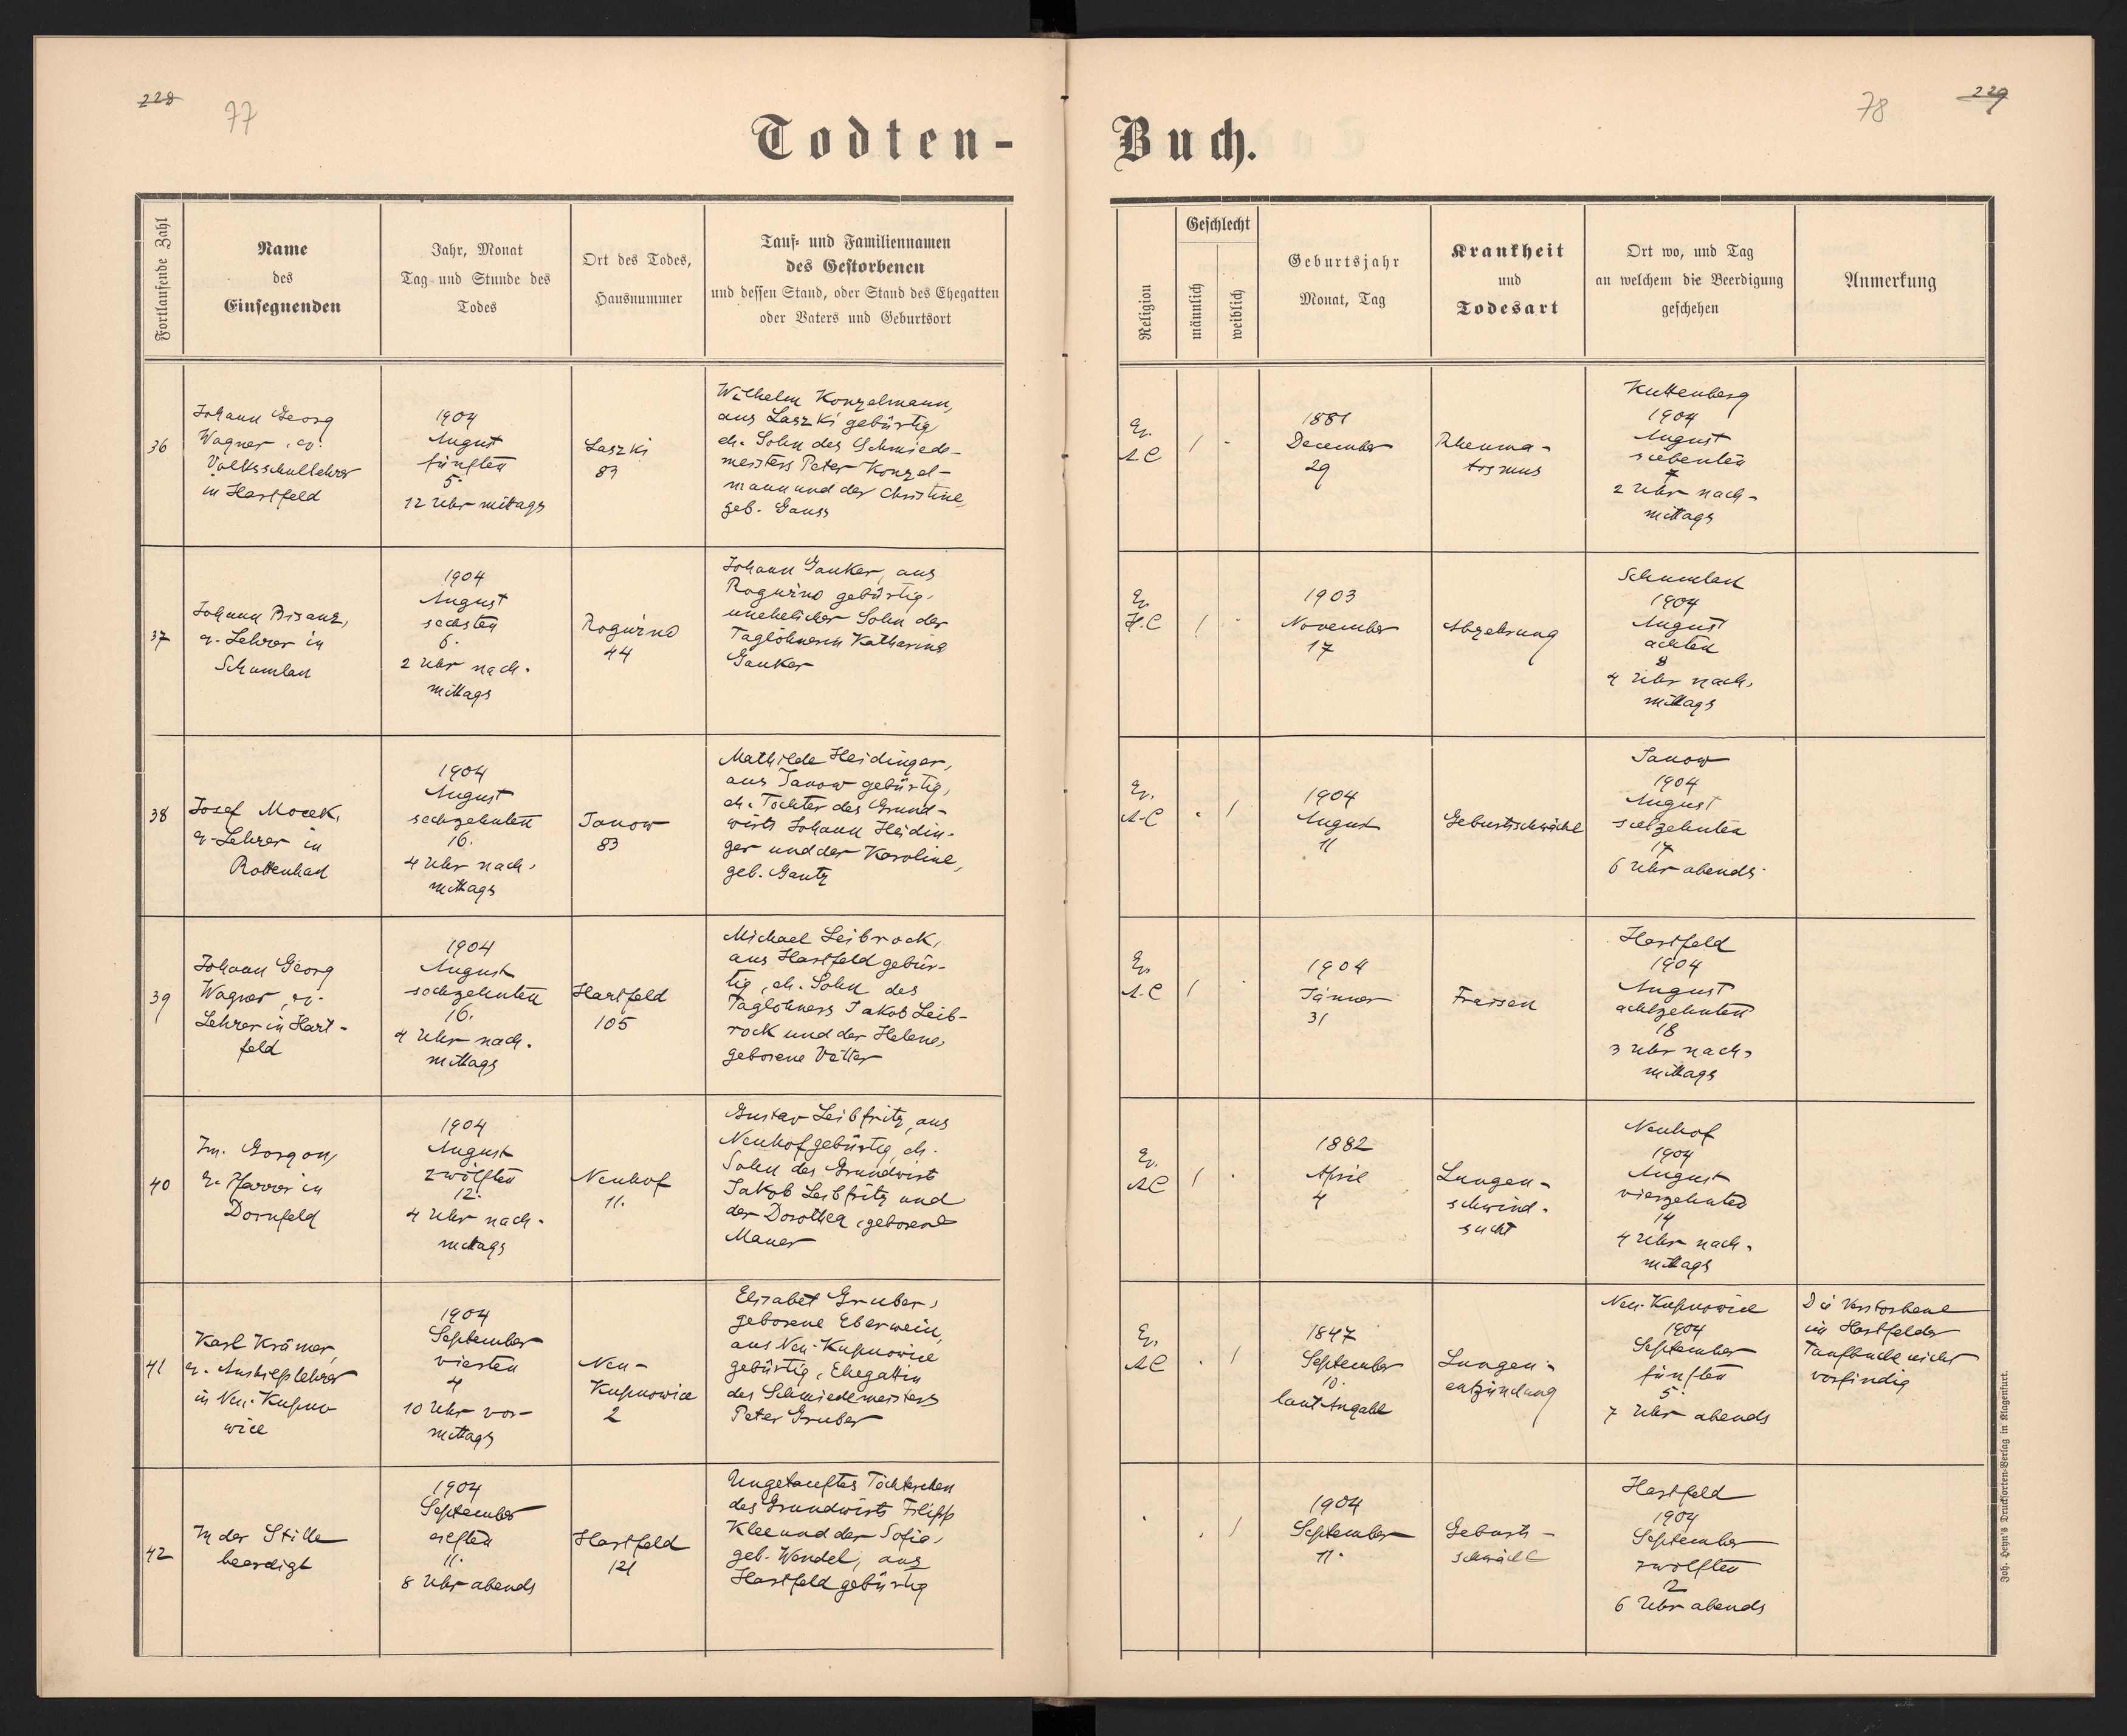 228
77
Todten-
Fortlaufende Zahl
Name
des
Einsegnenden
Jahr, Monat
Tag und Stunde des
Todes
Ort des Todes,
Hausnummer
Tauf- und Familiennamen
des Gestorbenen
und dessen Stand, oder Stand des Ehegatten
oder Vaters und Geburtsort
36
Johann Georg
Wagner, ev.
Volksschullehrer
in Hartfeld
1904
August
fünften
5.
12 Uhr mittags
Laszki
83
Wilhelm Konzelmann,
aus Laszki gebürtig,
eh. Sohn des Schmiede-
meisters Peter Konzel-
mann und der Christine,
geb. Gauss
37
Johann Bisanz,
ev. Lehrer in
Schumlau
1904
August
sechsten
6.
2 Uhr nach-
mittags
Roguźno
44
Johann Ganker, aus
Roguźno gebürtig,
unehelicher Sohn der
Taglöhnerin Katharina
Ganker
38
Josef Mocek,
ev. Lehrer in
Rottenhan
1904
August
sechzehnten
16.
4 Uhr nach-
mittags
Janow
83
Mathilde Heidinger,
aus Janow gebürtig,
eh. Tochter des Grund-
wirts Johann Heidin-
ger und der Karoline,
geb. Gantz
39
Johann Georg
Wagner, ev.
Lehrer in Hart-
feld
1904
August
sechzehnten
16.
4 Uhr nach-
mittags
Hartfeld
105
Michael Leibrock,
aus Hartfeld gebür-
tig, eh. Sohn des
Taglöhners Jakob Leib-
rock und der Helene,
geborene Vetter
40
Im. Gorgon,
ev. Pfarrer in
Dornfeld
1904
August
zwölften
12.
4 Uhr nach-
mittags
Neuhof
11.
Gustav Leibfritz, aus
Neuhof gebürtig, eh.
Sohn des Grundwirts
Jakob Leibfritz und
der Dorothea, geborene
Mauer
41
Karl Krämer,
ev. Aushilfslehrer
in Neu-Kupno
wice
1904
September
vierten
4
10 Uhr vor-
mittags
Neu-
Kupnowice
2
Elisabet Gruber,
geborene Eberwein,
aus Neu-Kupnowice
gebürtig, Ehegattin
des Schmiedemeisters
Peter Gruber
42
In der Stille
beerdigt
1904
September
elften
11.
8 Uhr abends
Hartfeld
121
Ungetauftes Töchterchen
des Grundwirts Filipp
Klee und der Sofie,
geb. Wendel, aus
Hartfeld gebürtig
229
78
Buch.
Religion
Geschlecht
männlich
weiblich
Geburtsjahr
Monat, Tag
Krankheit
und
Todesart
Ort wo, und Tag
an welchem die Beerdigung
geschehen
Anmerkung
Ev.
A.C
1
1881
December
29
Rheuma-
tismus
Kuttenberg
1904
August
siebenten
7
2 Uhr nach-
mittags
Ev.
H.C
1
1903
November
17
Abzehrung
Schumlau
1904
August
achten
8
4 Uhr nach-
mittags
Ev.
A.C
1
1904
August
11
Geburtsschwäche
Janow
1904
August
siebzehnten
17
6 Uhr abends
Ev.
A.C
1
1904
Jänner
31
Fraisen
Hartfeld
1904
August
achtzehnten
18
3 Uhr nach-
mittags
Ev.
AC
1
1882
April
4
Lungen-
schwind-
sucht
Neuhof
1904
August
vierzehnten
14
4 Uhr nach-
mittags
Ev.
AC
1
1847
September
10.
laut Angabe
Lungen-
entzündung
Neu-Kupnowice
1904
September
fünften
5.
7 Uhr abends
Die Verstorbene
im Hartfelder
Taufbuche nicht
vorfindig
1
1904
September
11.
Geburts-
schwäche
Hartfeld
1904
September
zwölften
12
6 Uhr abends
Joh. Heyn's Drucksorten-Verlag in Klagenfurt.